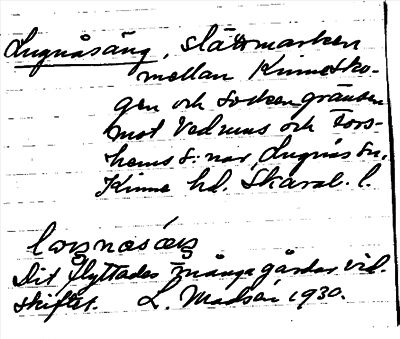 Lugnåsäng, slättmarken
mellan Kinnesko-
gen och sockengränsen
mot Vedums och Fors-
hems s:nar, Lugnås sn,
Kinne hd. Skarab. l.
Dit flyttades många gårdar vid
skiftet. L. Madsén 1930.